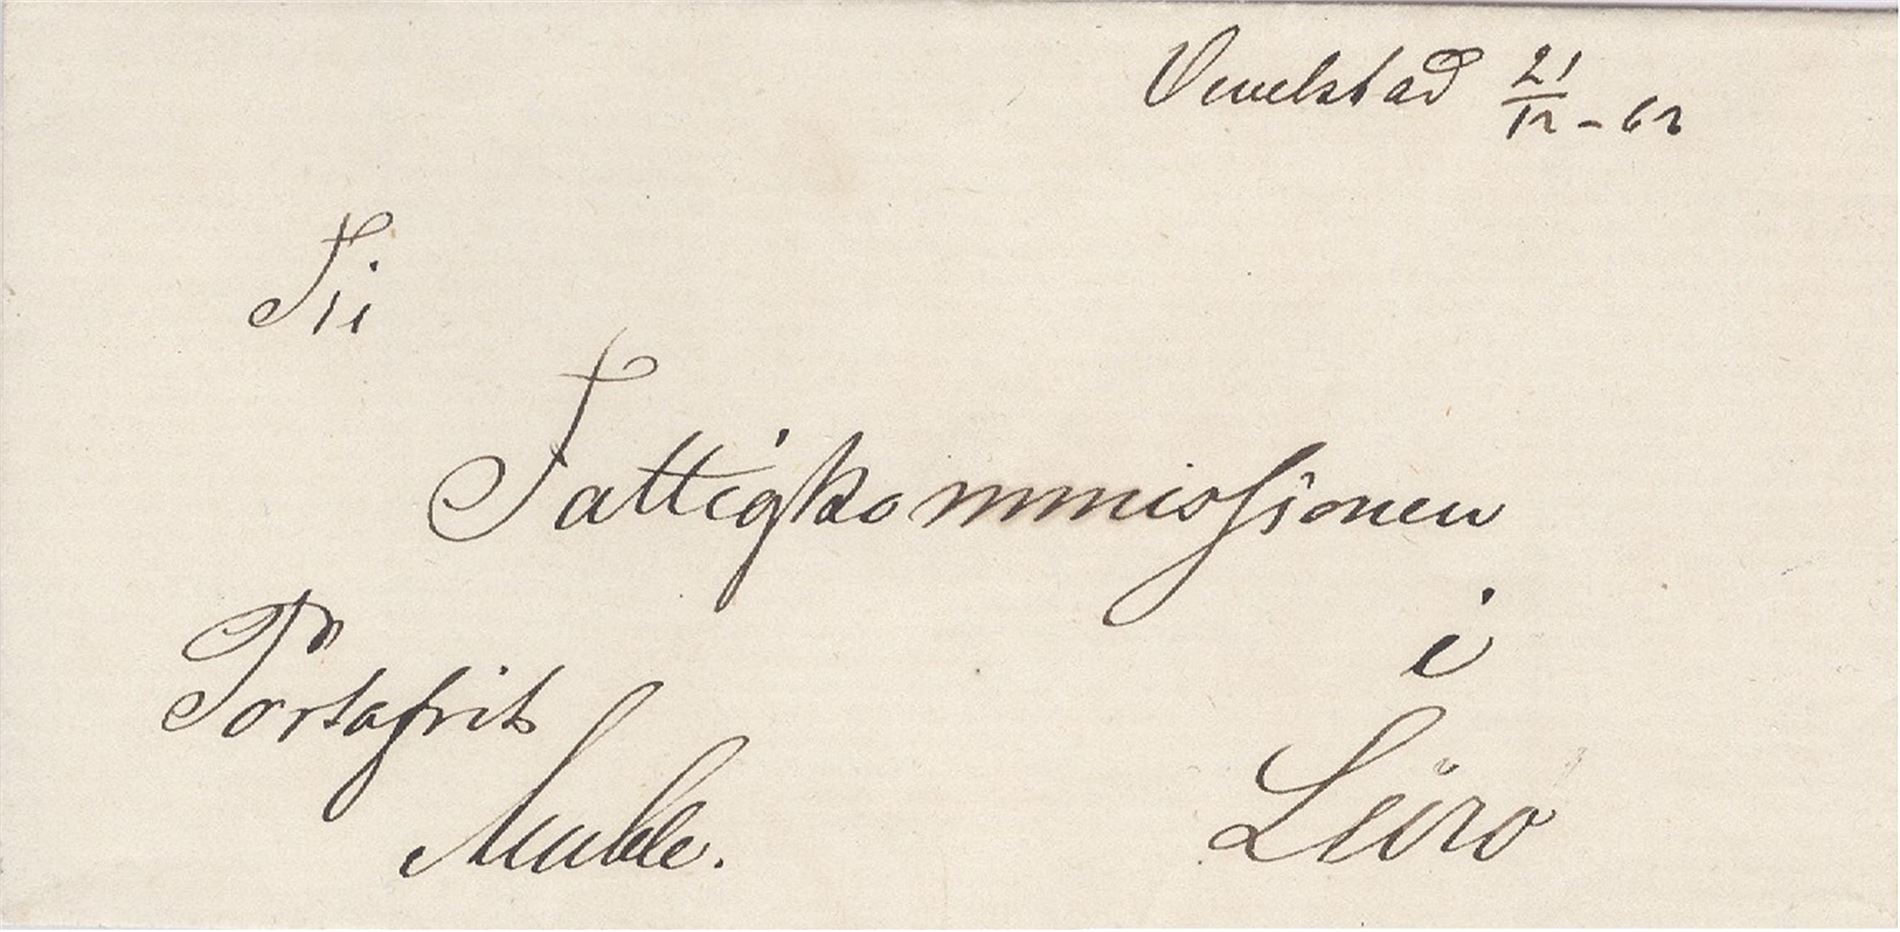 Vevelstad 21/12 - 62
Til
Fattigkommissionen
i
Lurø
Portofrit